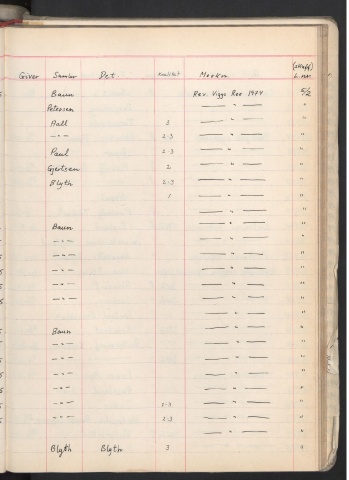 (skuff)
Giver Samler Det Kvalitet Merkn. L. nr.
Baun Rev. Viggo Ree 1974 5/2
Petersen — " — "
Aall 3 — " — "
— " — 2-3 — " — "
Paul 2-3 — " — "
Gjertsen 2 — " — "
Blyth 2-3 — " — "
1 — " — "
— " — "
Baun — " — "
— " — — " — "
— " — — " — "
— " — — " — "
— " — — " — "
— " — — " — "
— " — "
Baun — " — "
— " — — " — "
— " — — " — "
— " — — " — "
— " — — " — "
— " — 2-3 — " — "
— " — 2-3 — " — "
— " — "
Blyth Blyth 3 — " — "